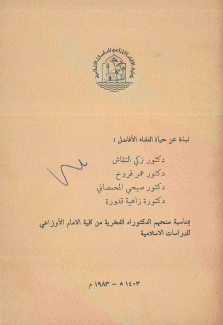 نبذة عن حياة العلماء الأفاضل :
دكتور زكي النقاش
دكتور عمر فروخ
دكتور صبحي المحمصاني
دكتورة زاهية قدورة
بمناسبة منحهم الدكتوراه الفخرية من كلية الامام الأوزاعي
للدراسات الاسلامية
١٤٠٣ هـ - ١٩٨٣ م